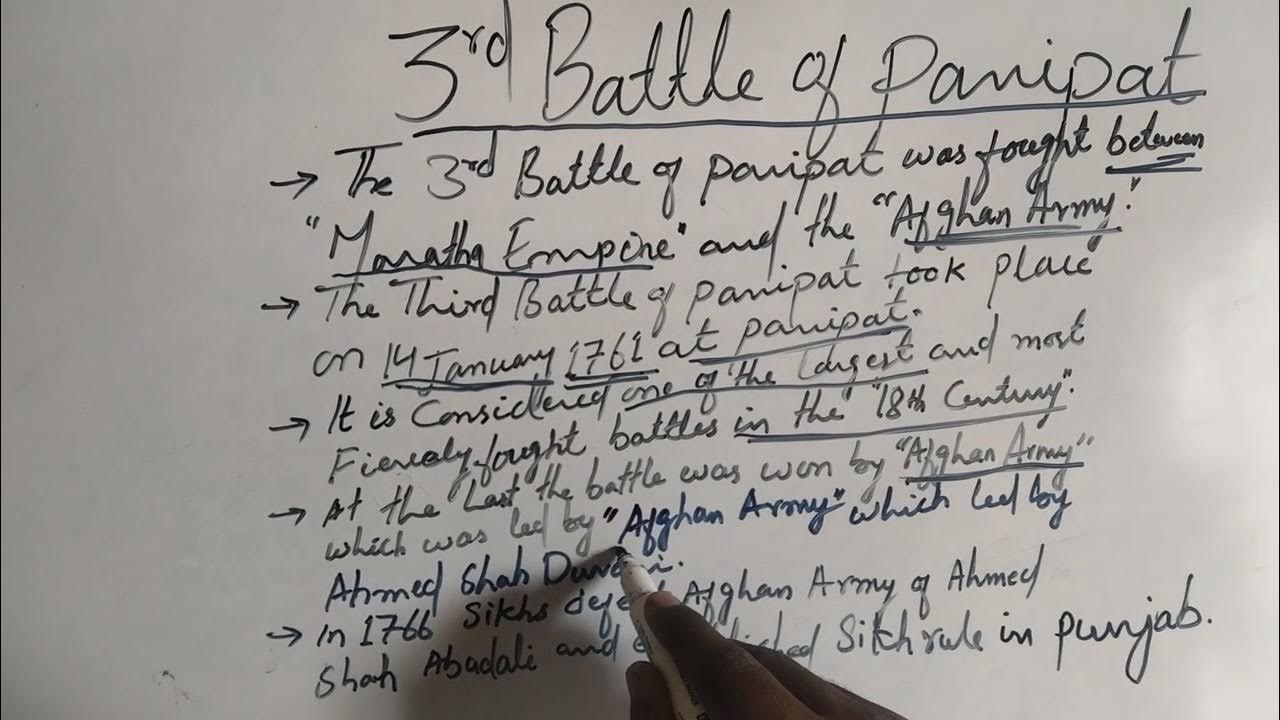 3rd Battle of Panipat
→ The 3rd Battle of panipat was fought between
"Maratha Empire" and the "Afghan Army."
→ The Third Battle of panipat took place
on 14 January 1761 at panipat.
→ It is Considered one of the largest and most
Fiercely fought battles in the "18th Century".
→ At the Last the battle was won by "Afghan Army"
which was led by "Afghan Army" which led by
Ahmed Shah Durrani.
→ in 1766 Sikhs Afghan Army of Ahmed
Shah Abadali and Sikh rule in punjab.